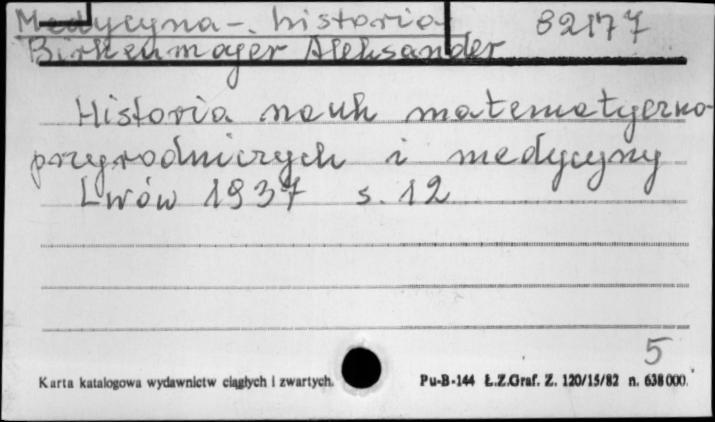 Medycyna - historia 82177
Birkenmajer Aleksander
Historia nauk matematyczno-
przyrodniczych i medycyny
Lwów 1937 s. 12
5
Karta katalogowa wydawnictw ciągłych i zwartych. Pu-B-144 Ł.Z.Graf. Z. 120/15/82 n. 638000.